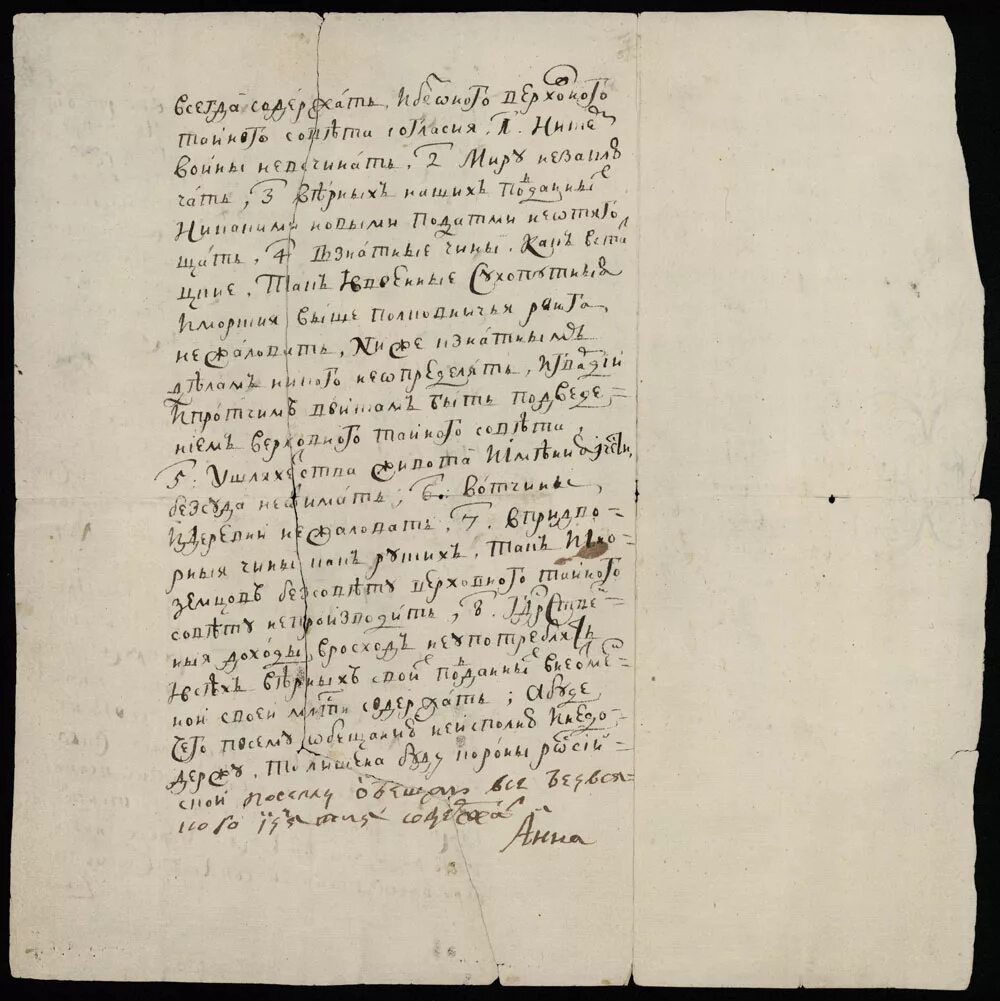 всегда содержать, и без оного верховного
тайного совѣта согласия, 1. Ни с кѣм
войны не всчинать, 2 Миру не заклю
чать, 3 вѣрных наших подданных
Никакими новыми податми не отяго
щать, 4 В знатные чины, как в ста
цкие, Так и в военные Сухопутныя
и морския выше полковничья ранга,
не жаловать, Ниже к знатным
дѣлам никого не определять, и гвардии
и протчим войскам быть под веде=
нием верховного тайного совѣта,
5: У шляхетства живота и имѣния и чести,
без суда не отимать; 6. вотчины,
и деревни не жаловать, 7. в придво=
рныя чины как руских, так и ино=
земцов без совѣту верховного тайного
совѣту не производить, 8. Государствен=
ныя доходы в росход не употреблять
и всѣх вѣрных своих подданных в неотмен=
ной своей милости содержать; А буде,
чего по сему обещанию не исполню и не до=
держу, то лишена буду короны росий=
ской по сему обещаю все без вся=
кого изятия содержать
Анна